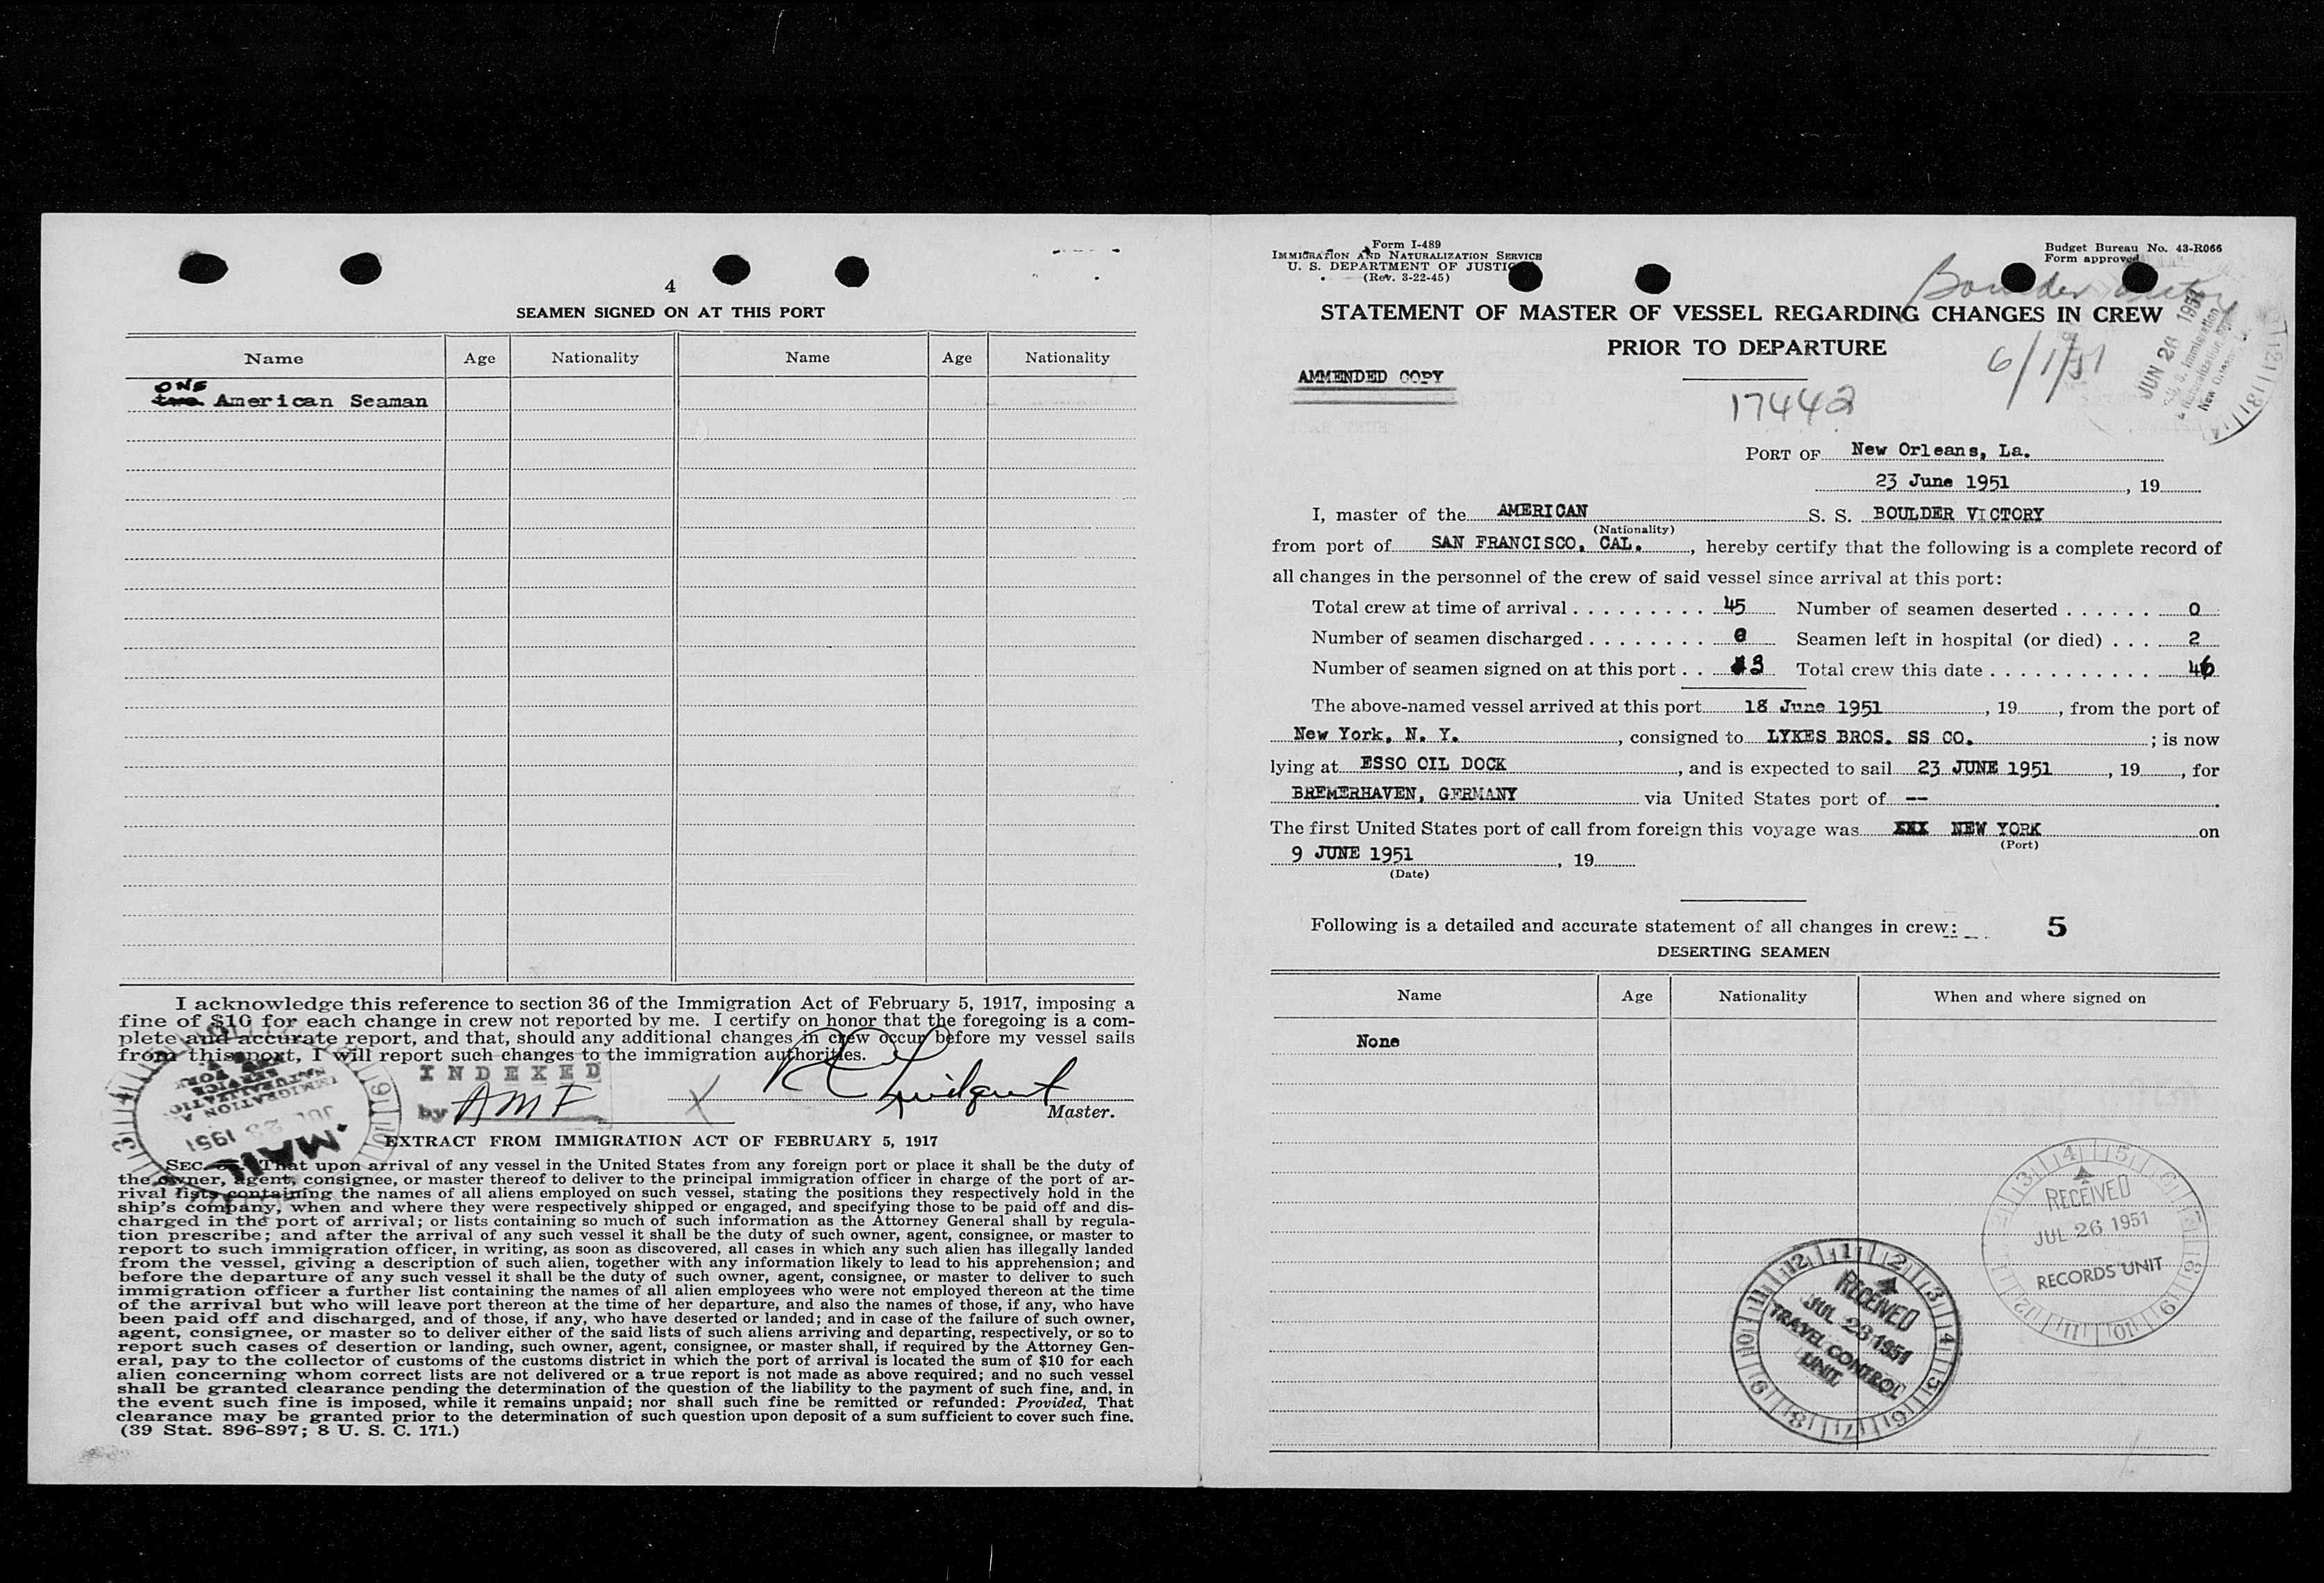 4
SEAMEN SIGNED ON AT THIS PORT
Name Age Nationality Name Age Nationality
ONE
two American Seaman
I acknowledge this reference to section 36 of the Immigration Act of February 5, 1917, imposing a
fine of $10 for each change in crew not reported by me. I certify on honor that the foregoing is a com-
plete and accurate report, and that, should any additional changes in crew occur before my vessel sails
from this port, I will report such changes to the immigration authorities.
INDEXED
by AMF
X
Master.
MAIL
JUL 23 1951
IMMIGRATION &
NATURALIZATION
SERVICE
EXTRACT FROM IMMIGRATION ACT OF FEBRUARY 5, 1917
SEC. That upon arrival of any vessel in the United States from any foreign port or place it shall be the duty of
the owner, agent, consignee, or master thereof to deliver to the principal immigration officer in charge of the port of ar-
rival lists containing the names of all aliens employed on such vessel, stating the positions they respectively hold in the
ship's company, when and where they were respectively shipped or engaged, and specifying those to be paid off and dis-
charged in the port of arrival; or lists containing so much of such information as the Attorney General shall by regula-
tion prescribe; and after the arrival of any such vessel it shall be the duty of such owner, agent, consignee, or master to
report to such immigration officer, in writing, as soon as discovered, all cases in which any such alien has illegally landed
from the vessel, giving a description of such alien, together with any information likely to lead to his apprehension; and
before the departure of any such vessel it shall be the duty of such owner, agent, consignee, or master to deliver to such
immigration officer a further list containing the names of all alien employees who were not employed thereon at the time
of the arrival but who will leave port thereon at the time of her departure, and also the names of those, if any, who have
been paid off and discharged, and of those, if any, who have deserted or landed; and in case of the failure of such owner,
agent, consignee, or master so to deliver either of the said lists of such aliens arriving and departing, respectively, or so to
report such cases of desertion or landing, such owner, agent, consignee, or master shall, if required by the Attorney Gen-
eral, pay to the collector of customs of the customs district in which the port of arrival is located the sum of $10 for each
alien concerning whom correct lists are not delivered or a true report is not made as above required; and no such vessel
shall be granted clearance pending the determination of the question of the liability to the payment of such fine, and, in
the event such fine is imposed, while it remains unpaid; nor shall such fine be remitted or refunded: Provided, That
clearance may be granted prior to the determination of such question upon deposit of a sum sufficient to cover such fine.
(39 Stat. 896-897; 8 U. S. C. 171.)
Form I-489
IMMIGRATION AND NATURALIZATION SERVICE
U. S. DEPARTMENT OF JUSTICE
(Rev. 3-22-45)
Budget Bureau No. 43-R066
Form approved
Boulder Victory
STATEMENT OF MASTER OF VESSEL REGARDING CHANGES IN CREW
PRIOR TO DEPARTURE
6/1/51
JUN 28 1951
U. S. Immigration
& Naturalization
New Orleans
AMMENDED COPY
17442
PORT OF New Orleans, La.
23 June 1951, 19
I, master of the AMERICAN S. S. BOULDER VICTORY
(Nationality)
from port of SAN FRANCISCO, CAL., hereby certify that the following is a complete record of
all changes in the personnel of the crew of said vessel since arrival at this port:
Total crew at time of arrival 45 Number of seamen deserted 0
Number of seamen discharged 0 Seamen left in hospital (or died) 2
Number of seamen signed on at this port 3 Total crew this date 46
The above-named vessel arrived at this port 18 June 1951, 19, from the port of
New York, N. Y., consigned to LYKES BROS. SS CO.; is now
lying at ESSO OIL DOCK, and is expected to sail 23 JUNE 1951, 19, for
BREMERHAVEN, GERMANY via United States port of --.
The first United States port of call from foreign this voyage was XXX NEW YORK on
(Port)
9 JUNE 1951, 19
(Date)
Following is a detailed and accurate statement of all changes in crew: 5
DESERTING SEAMEN
Name Age Nationality When and where signed on
None
RECEIVED
JUL 26 1951
RECORDS UNIT
RECEIVED
JUL 23 1951
TRAVEL CONTROL
UNIT